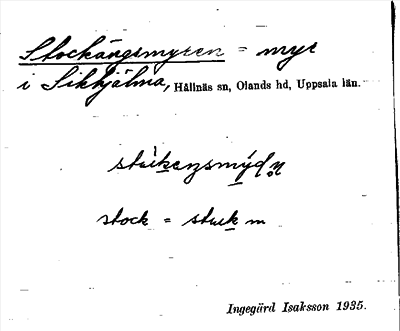 Stockängsmyren = myr
i Sikhjälma, Hållnäs sn, Olands hd, Uppsala län.
stock = m
Ingegärd Isaksson 1935.